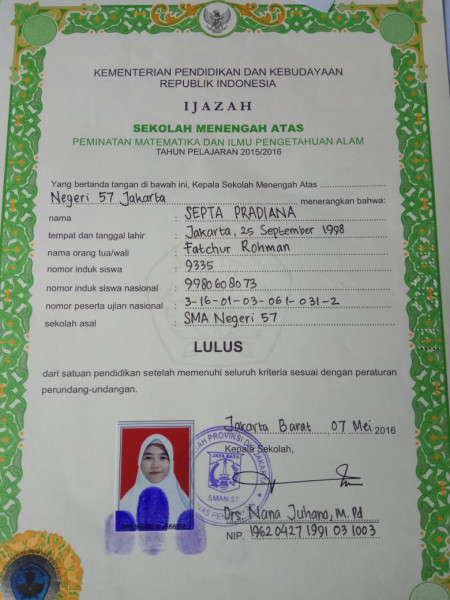 KEMENTERIAN PENDIDIKAN DAN KEBUDAYAAN
REPUBLIK INDONESIA
IJAZAH
SEKOLAH MENENGAH ATAS
PEMINATAN MATEMATIKA DAN ILMU PENGETAHUAN ALAM
TAHUN PELAJARAN 2015/2016
Yang bertanda tangan di bawah ini, Kepala Sekolah Menengah Atas
Negeri 57 Jakarta menerangkan bahwa:
nama : SEPTA PRADIANA
tempat dan tanggal lahir : Jakarta, 25 September 1998
nama orang tua/wali : Fatchur Rohman
nomor induk siswa : 9335
nomor induk siswa nasional : 9980608073
nomor peserta ujian nasional : 3-16-01-03-061-031-2
sekolah asal : SMA Negeri 57
LULUS
dari satuan pendidikan setelah memenuhi seluruh kriteria sesuai dengan peraturan
perundang-undangan.
Jakarta Barat, 07 Mei 2016
Kepala Sekolah,
JAYA RAYA
SMAN 57
Drs. Nana Juhana, M.Pd
NIP. 19620427 1991 03 1003